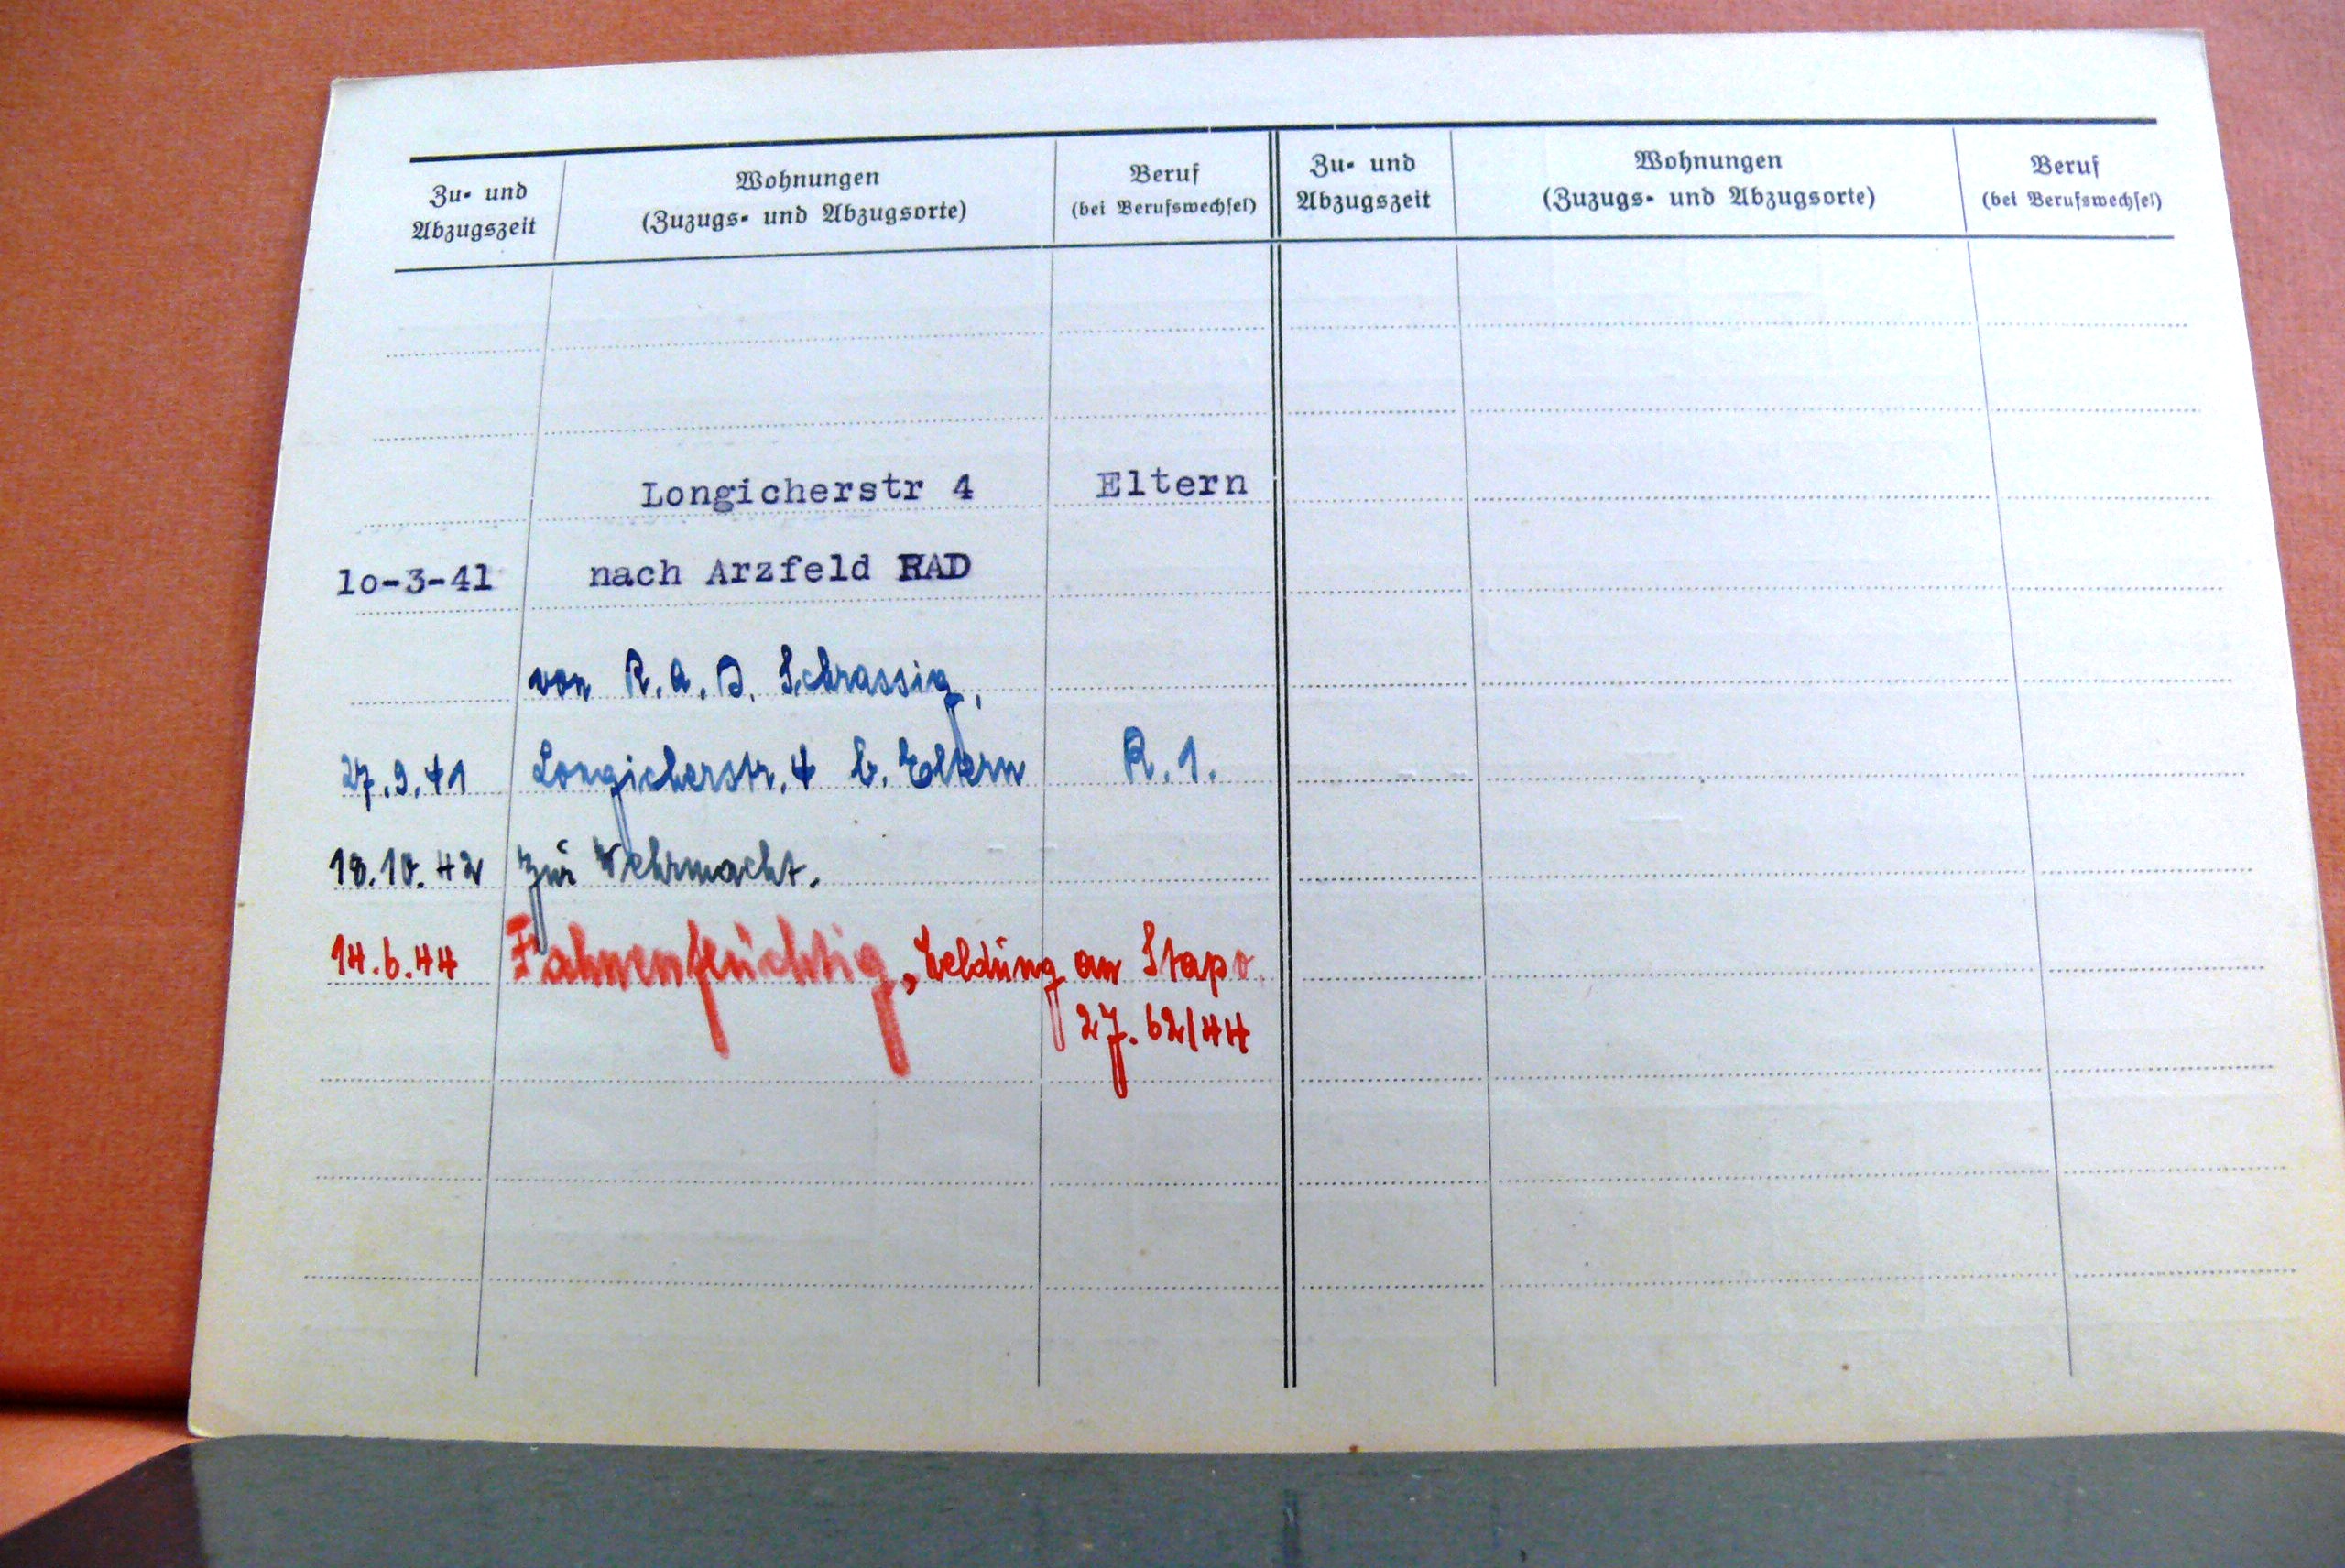 Zu- und Abzugszeit
Wohnungen
(Zuzugs- und Abzugsorte)
Beruf
(bei Berufswechsel)
Zu- und Abzugszeit
Wohnungen
(Zuzugs- und Abzugsorte)
Beruf
(bei Berufswechsel)
Longicherstr 4 Eltern
lo-3-41 nach Arzfeld RAD
von R.A.D. Schrassig,
27.9.41 Longicherstr. 4 b. Eltern R.1.
18.10.42 zur Wehrmacht.
14.6.44 Fahnenflüchtig, Meldung an Stapo.
27.62/44